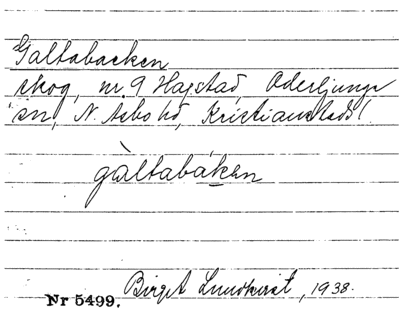 Galtabacken
skog, nr. 9 Hagstad, Oderljunga
sn, N. Åsbo hd, Kristianstads l.
gàltabákan
Birgit Lundkvist, 1938.
Nr 5499.